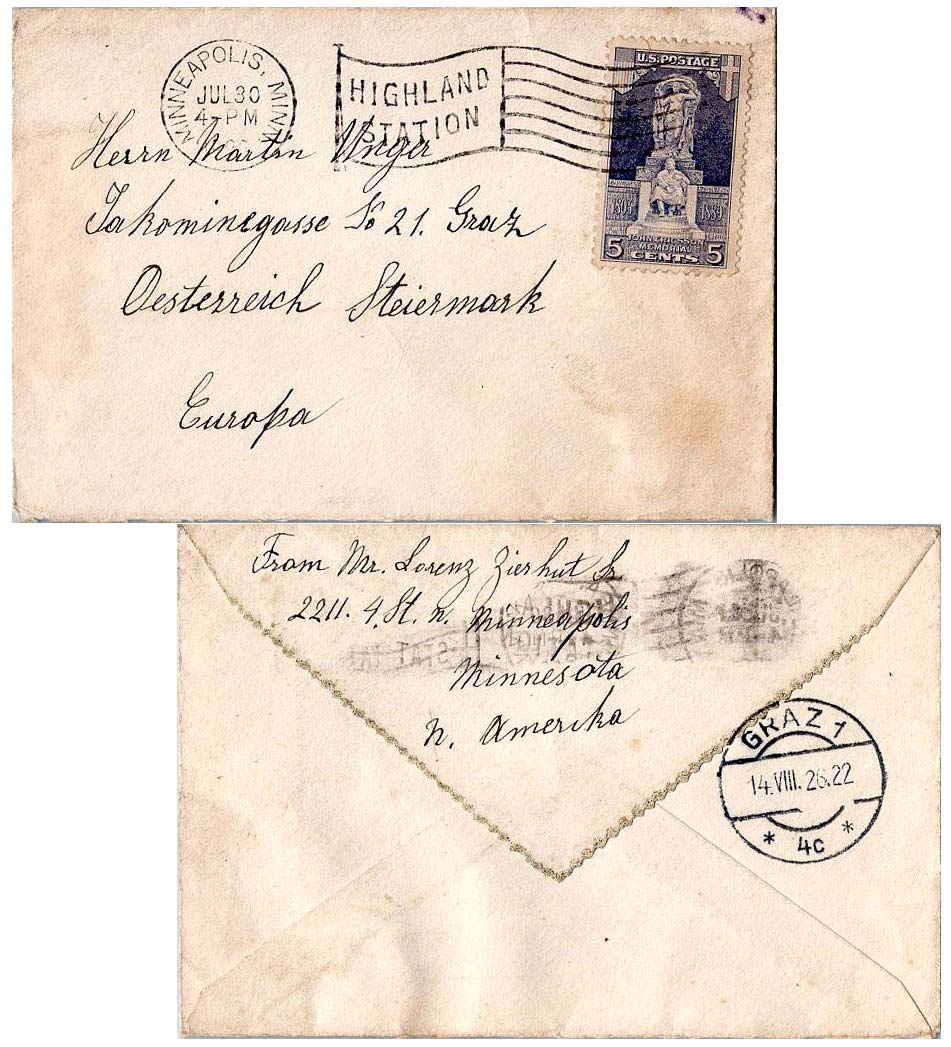 MINNEAPOLIS, MINN.
JUL 30
4-PM
HIGHLAND
STATION
U.S. POSTAGE
1803 1889
JOHN ERICSSON
MEMORIAL
5 CENTS 5
Herrn Martin Unger
Jakominegasse No 21. Graz
Oesterreich Steiermark
Europa
From Mr. Lorenz Zierhut Sr
2211. 4. St. n. Minneapolis
Minnesota
N. Amerika
GRAZ 1
14.VIII.26.22
* 4c *